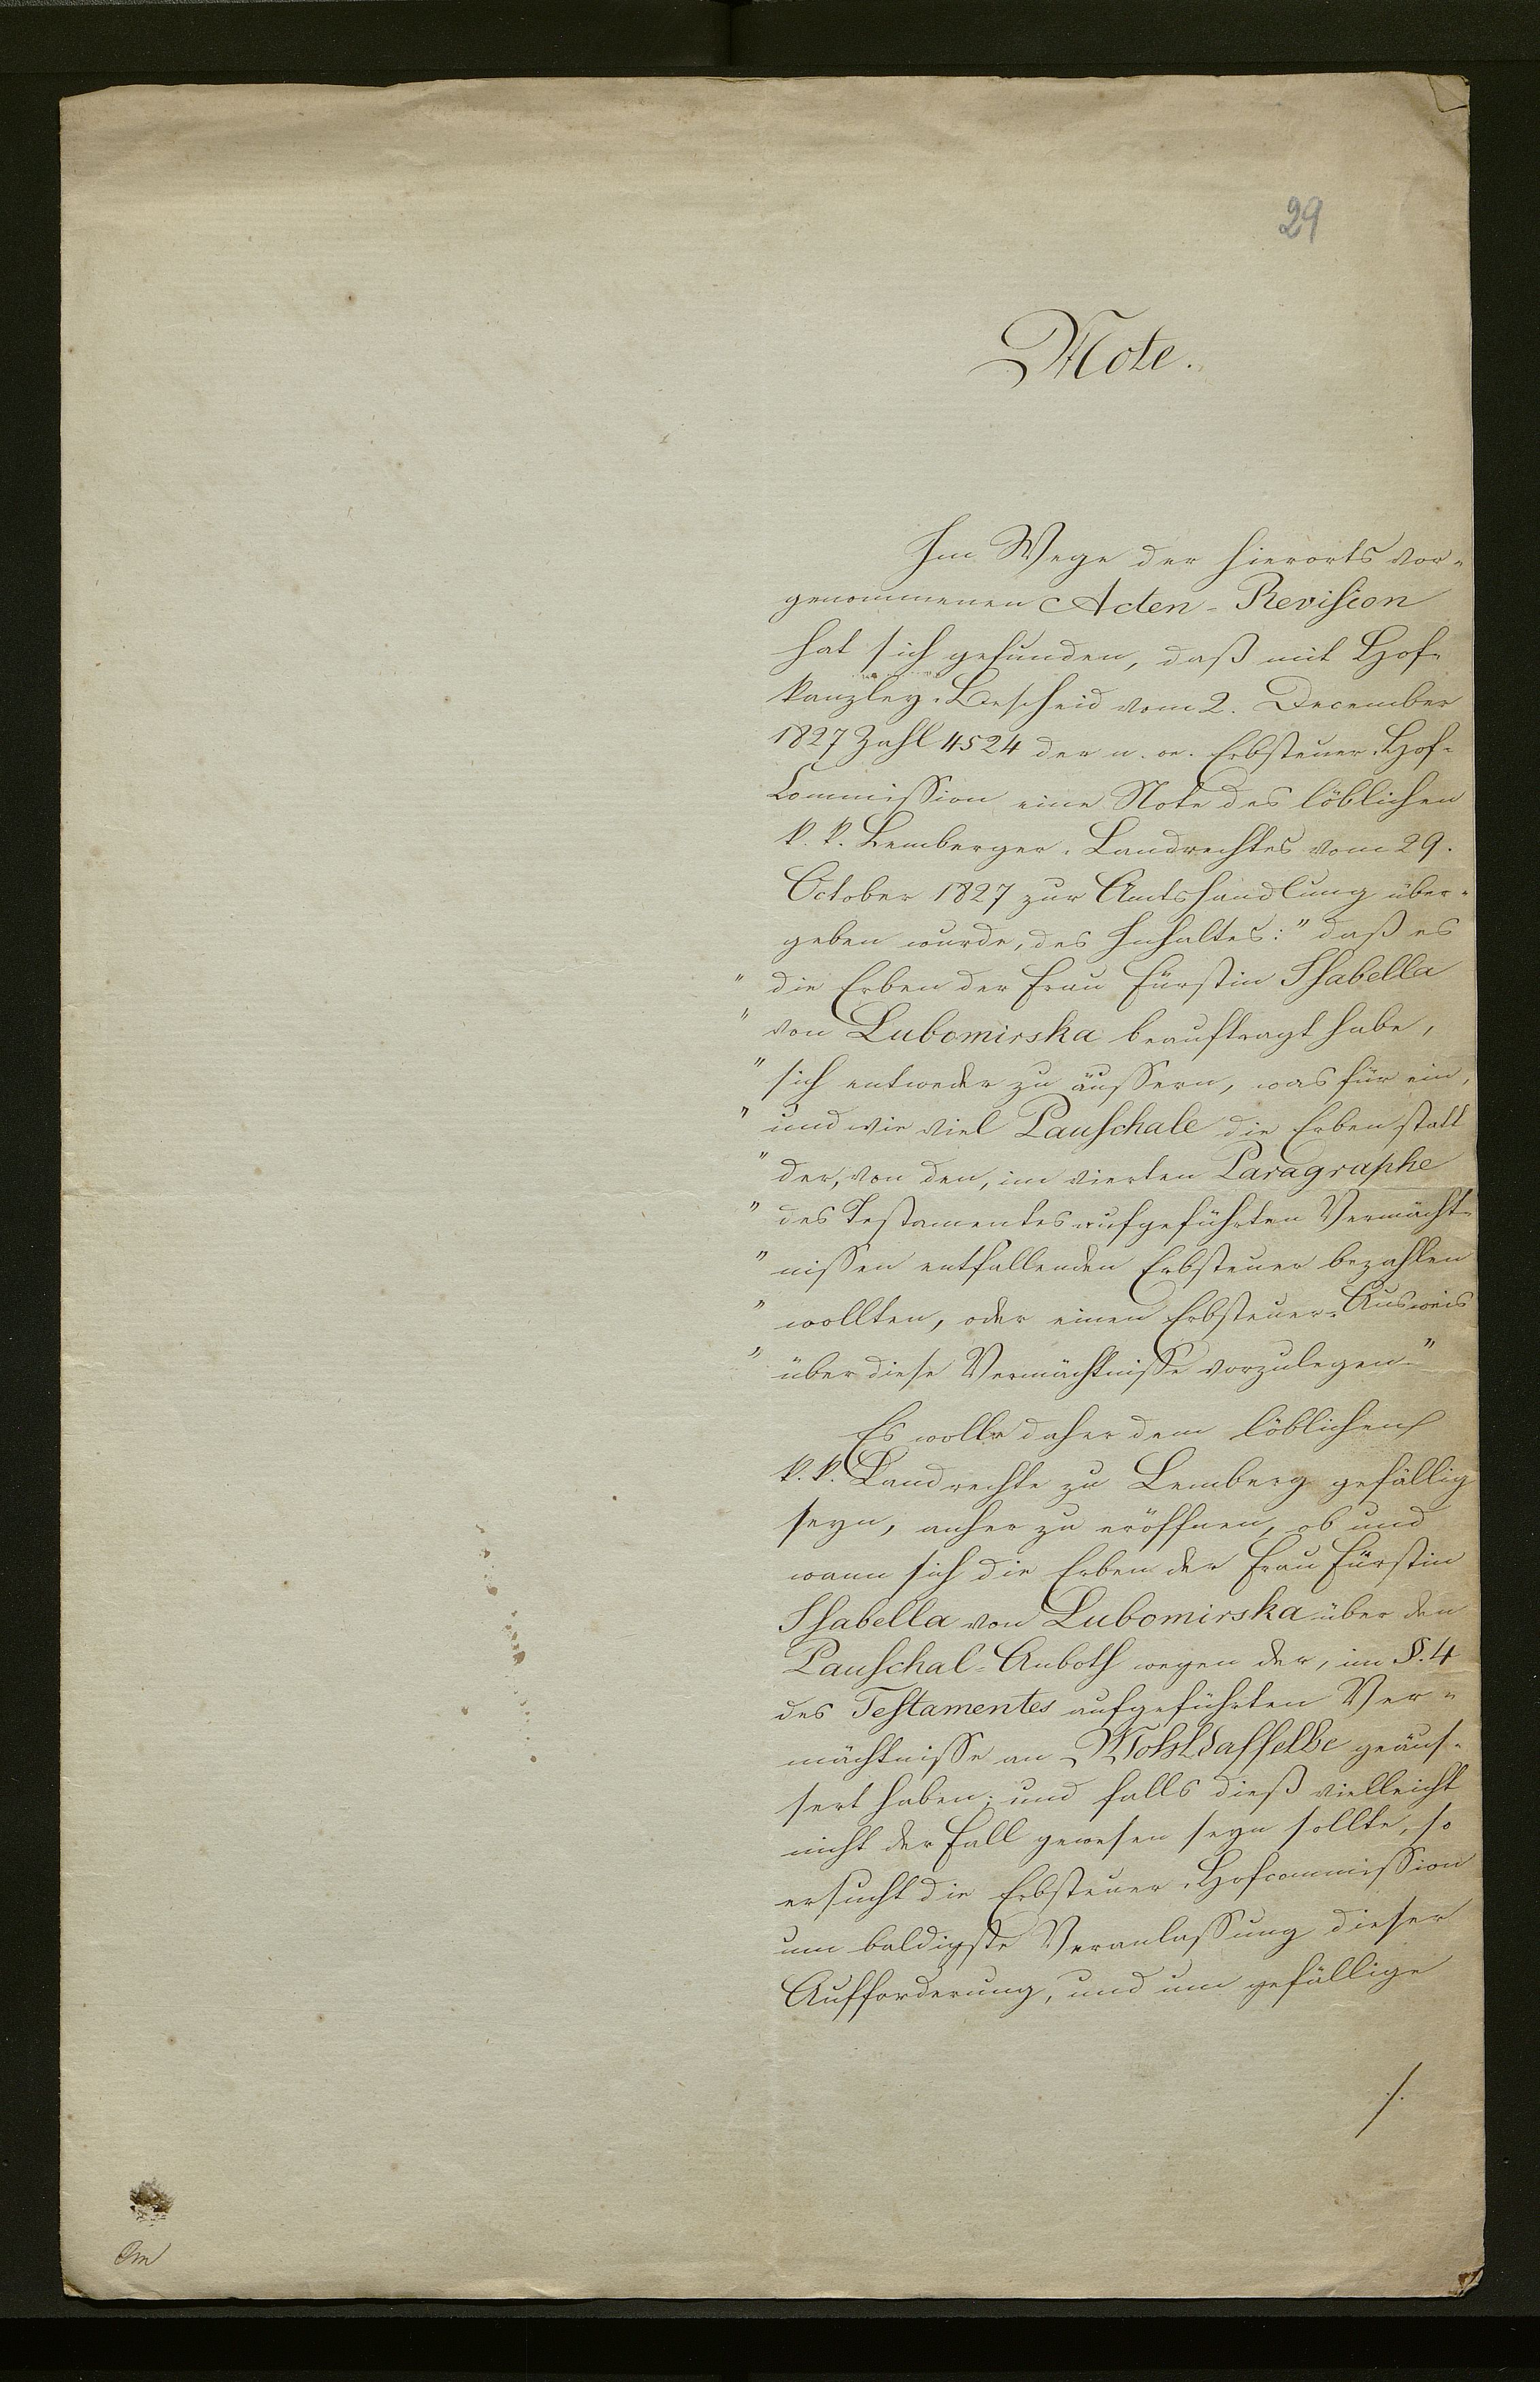 29
Note.
Im Wege der hierorts vor-
genommenen Acten-Revision
hat sich gefunden, daß mit Hof-
kanzley-Bescheid vom 2. December
1827 Zahl 4524 der n. oe. Erbsteuer-Hof-
Commission eine Note des löblichen
k. k. Lemberger-Landrechtes vom 29.
October 1827 zur Amtshandlung über-
geben wurde, des Inhaltes: "daß es
" die Erben der Frau Fürstin Isabella
" von Lubomirska beauftragt habe,
" sich entweder zu äussern, was für ein,
" und wie viel Pauschale die Erben statt
" der, von den, im vierten Paragraphe
" des Testamentes aufgeführten Vermächt-
" nissen entfallenden Erbsteuer bezahlen
" wollten, oder einen Erbsteuer-Ausweis
" über diese Vermächtnisse vorzulegen."
Es wolle daher dem löblichen
k. k. Landrechte zu Lemberg gefällig
seyn, anher zu eröffnen, ob und
wann sich die Erben der Frau Fürstin
Isabella von Lubomirska über den
Pauschal-Anboth wegen der, im §. 4
des Testamentes aufgeführten Ver-
mächtnisse an Wohldasselbe geäus-
sert haben; und falls dieß vielleicht
nicht der Fall gewesen seyn sollte, so
ersucht die Erbsteuer-Hofcommission
um baldigste Veranlassung dieser
Aufforderung, und um gefällige
./.